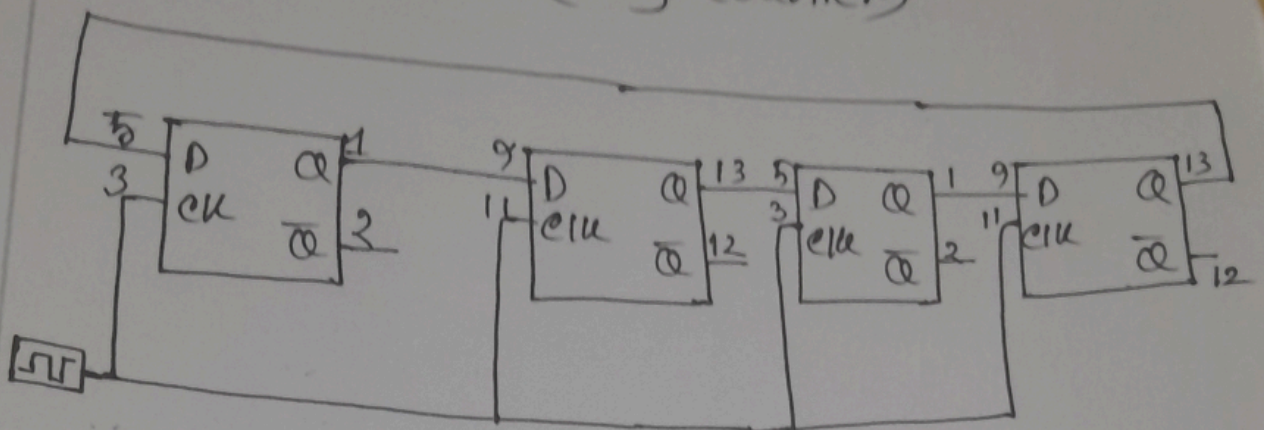 5 D Q 1
3 CK
Q̅ 2
9 D Q 13
11 Clk
Q̅ 12
5 D Q 1
3 Clk
Q̅ 2
9 D Q 13
11 Clk
Q̅ 12